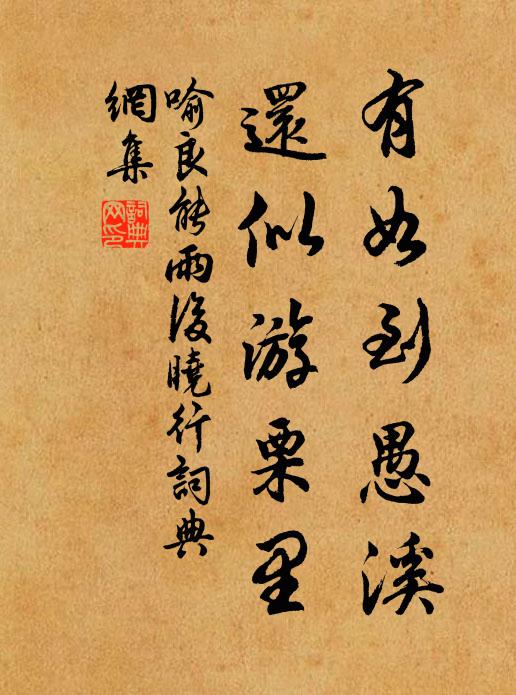 有如到愚溪
還似游栗里
喻良能雨後曉行詞典
網集
詞典網印